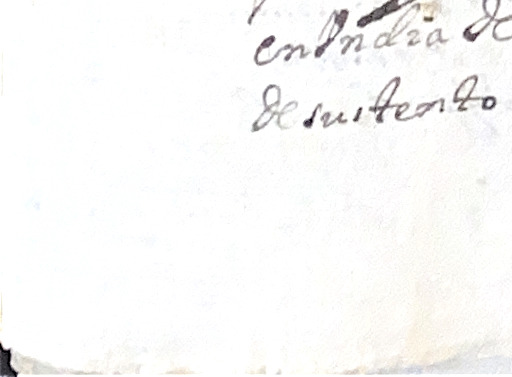 en India de
de sustento